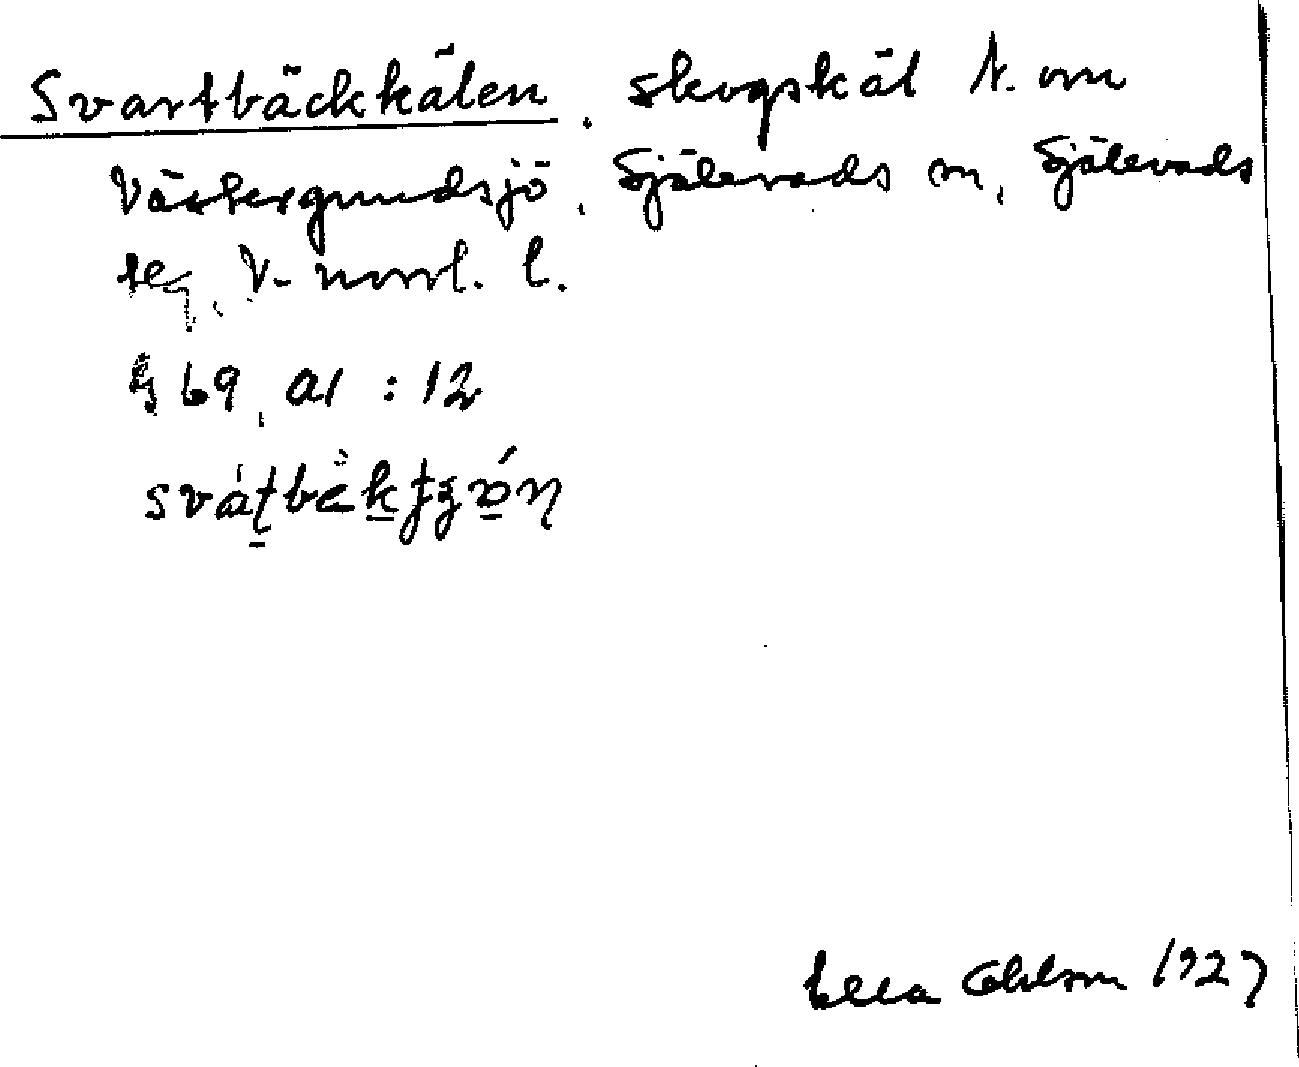 Svartbäckkälen. skogskäl N. om
Västergundsjö, Själevads sn, Själevads
tg, V-norrl. l.
§ 69, a1 : 12
Ella Ohlson 1927